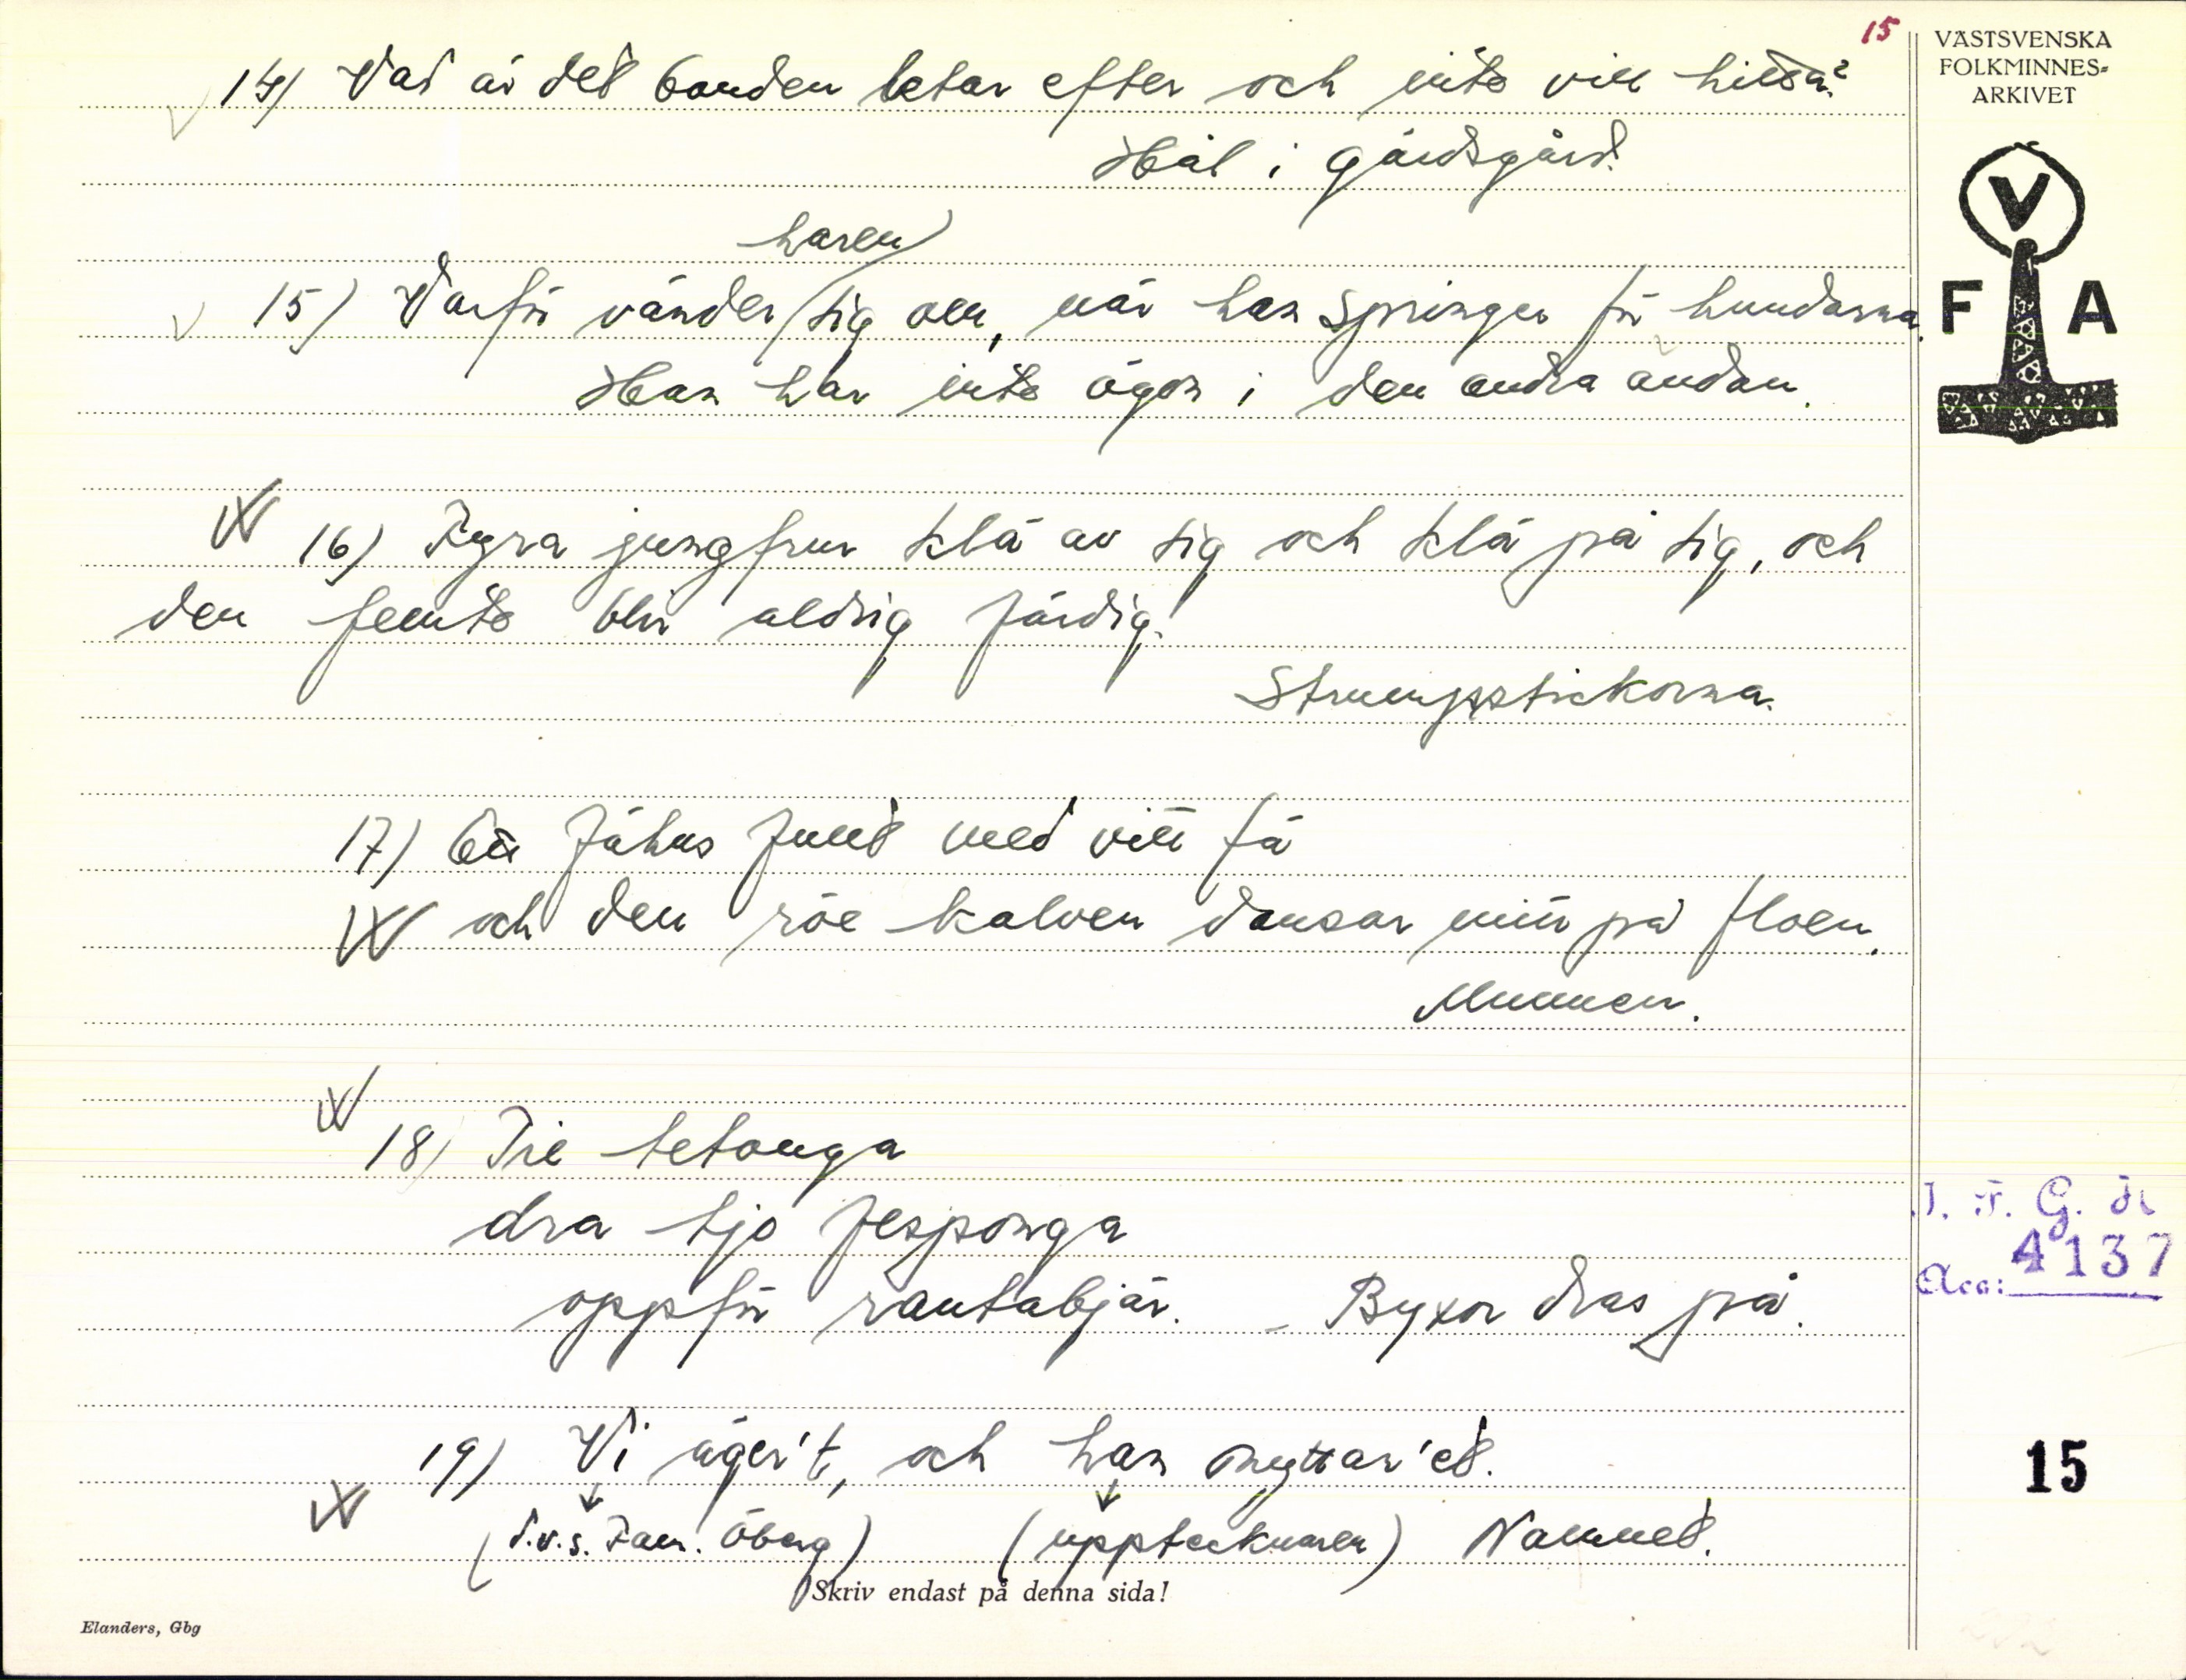 15
VÄSTSVENSKA
FOLKMINNES-
ARKIVET
V
F A
14) Vad är det bonden letar efter och inte vill hitta?
Hål i gärdsgård.
haren
15) Varför vänder sig om, när han springer för hundarna.
Han har inte ögon i den andra ändan.
16) Fyra jungfrur klä av sig och klä på sig, och
den femte blir aldrig färdig.
Strumpstickorna.
17) Ett fähus fullt med vitt fä
och den röe kalven dansar mitt på floen.
Munnen.
18) Tie tetånga
dra tjo fesponga
oppför rantabjär. - Byxor dras på.
19) Vi äger't, och han nyttar'et.
(d.v.s. Fam. Öberg) (upptecknaren) Namnet.
Skriv endast på denna sida!
Elanders, Gbg
I. F. G. nr
Acc: 4137
15